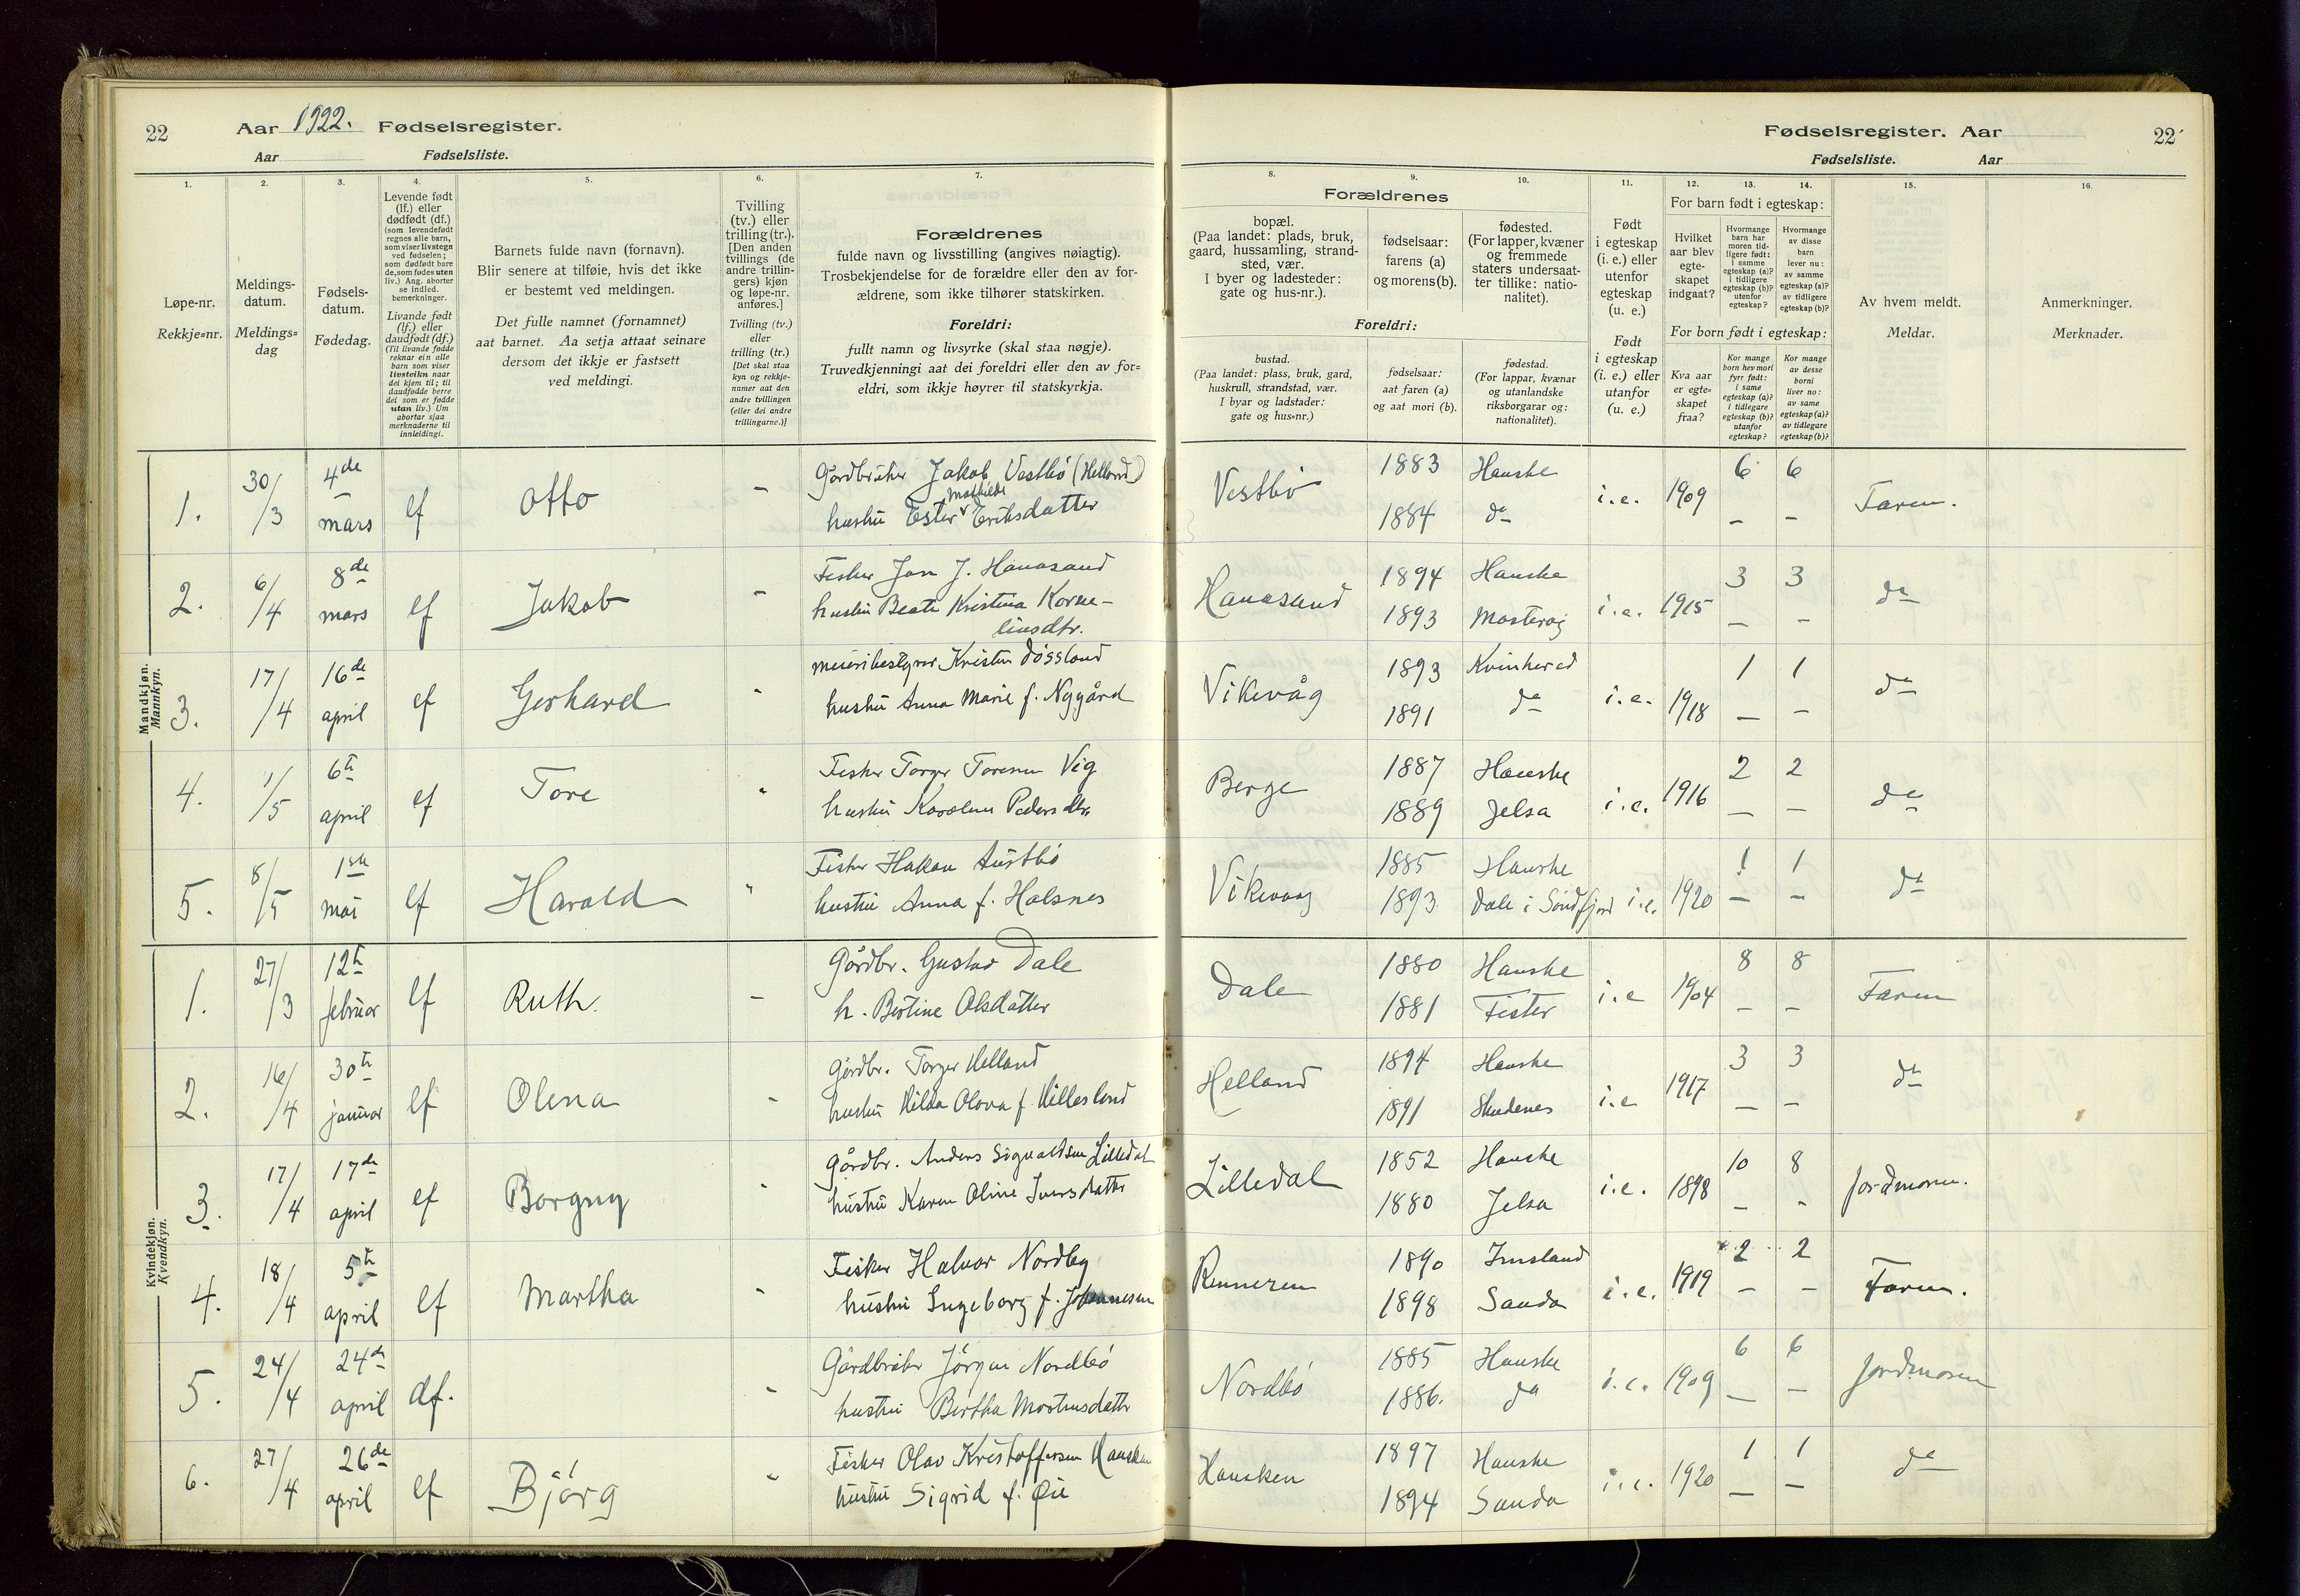 22 Aar 1922. Fødselsregister.
Aar Fødselsliste.
Fødselsregister. Aar 22
Fødselsliste. Aar
1. 2. 3. 4. 5. 6. 7. 8. 9. 10. 11. 12. 13. 14. 15. 16.
Løpe-nr.
Rekkje=nr.
Meldings-
datum.
Meldings=
dag
Fødsels-
datum.
Fødedag.
Levende født
(lf.) eller
dødfødt (df.)
(som levendefødt
regnes alle barn,
som viser livstegn
ved fødselen;
som dødfødt bare
de, som fødes uten
liv.) Ang. aborter
se indled.
bemerkninger.
Livande født
(lf.) eller
daudfødt (df.)
(Til livande fødde
reknar ein alle
barn som viser
livsteikn naar
dei kjem til; til
daudfødde berre
dei som er fødde
utan liv.) Um
abortar sjaa
merknaderne til
innleidingi.
Barnets fulde navn (fornavn).
Blir senere at tilføie, hvis det ikke
er bestemt ved meldingen.
Det fulle namnet (fornamnet)
aat barnet. Aa setja attaat seinare
dersom det ikkje er fastsett
ved meldingi.
Tvilling
(tv.) eller
trilling (tr.).
[Den anden
tvillings (de
andre trillin-
gers) kjøn
og løpe-nr.
anføres.]
Tvilling (tv.)
eller
trilling (tr.)
[Det skal staa
kyn og rekkje-
numer aat den
andre tvillingen
(eller dei andre
trillingarne.)]
Forældrenes
fulde navn og livsstilling (angives nøiagtig).
Trosbekjendelse for de forældre eller den av for-
ældrene, som ikke tilhører statskirken.
Foreldri:
fullt namn og livsyrke (skal staa nøgje).
Truvedkjenningi aat dei foreldri eller den av for=
eldri, som ikkje høyrer til statskyrkja.
Forældrenes
bopæl.
(Paa landet: plads, bruk,
gaard, hussamling, strand-
sted, vær.
I byer og ladesteder:
gate og hus-nr.).
fødselsaar:
farens (a)
og morens (b).
fødested.
(For lapper, kvæner
og fremmede
staters undersaat-
ter tillike: natio-
nalitet).
Foreldri:
bustad.
(Paa landet: plass, bruk, gard,
huskrull, strandstad, vær.
I byar og ladstader:
gate og hus=nr.)
fødselsaar:
aat faren (a)
og aat mori (b).
fødestad.
(For lappar, kvænar
og utanlandske
riksborgarar og:
nationalitet).
Født
i egteskap
(i. e.) eller
utenfor
egteskap
(u. e.)
Født
i egteskap
(i. e.) eller
utanfor
(u. e.)
For barn født i egteskap:
Hvilket
aar blev
egte-
skapet
indgaat?
Hvormange
barn har
moren tid-
ligere født:
i samme
egteskap (a)?
i tidligere
egteskap (b)?
utenfor
egteskap?
Hvormange
av disse
barn
lever nu:
av samme
egteskap (a)?
av tidligere
egteskap (b)?
For born født i egteskap:
Kva aar
er egte-
skapet
fraa?
Kor mange
born hev mori
fyrr født:
i same
egteskap (a)?
i tidlegare
egteskap (b)?
utanfor
egteskap?
Kor mange
av desse
borni
liver no:
av same
egteskap (a)?
av tidlegare
egteskap (b)?
Av hvem meldt.
Meldar.
Anmerkninger.
Merknader.
Mandkjøn.
Mannkyn.
1. 30/3 4de mars lf Otto – Gårdbruker Jakob Vestbø (Helland) Vestbø 1883 Hauske i.e. 1909 6 6 Faren.
hustru Ester Mathilde Eriksdatter 1884 do – –
2. 6/4 8de mars lf Jakob – Fisker Jon J. Hanasand Hanasand 1894 Hauske i.e. 1915 3 3 do
hustru Beate Kristina Korne-
liusdtr. 1893 Mosterøy – –
3. 17/4 16de april lf Gerhard " meieribestyrer Kristen Døssland Vikevåg 1893 Kvinherad i.e. 1918 1 1 do
hustru Anna Marie f. Nygård 1891 do – –
4. 1/5 6te april lf Tore " Fisker Torger Toresen Vig Berge 1887 Hauske i.e. 1916 2 2 do
hustru Karoline Pedersdtr. 1889 Jelsa – –
5. 8/5 1ste mai lf Harald " Fisker Hakon Austbø Vikevaag 1885 Hauske i.e. 1920 1 1 do
hustru Anna f. Halsnes 1893 Dale i Søndfjord – –
Kvindekjøn.
Kvendkyn.
1. 27/3 12te februar lf Ruth. – Gårdbr. Gustav Dale Dale 1880 Hauske i.e 1904 8 8 Faren
h. Bertine Olsdatter 1881 Fister – –
2. 16/4 30te januar lf Olena - Gårdbr. Torger Helland Helland 1894 Hauske i.e 1917 3 3 do
hustru Hilda Olava f. Hillesland 1891 Skudenes – –
3. 17/4 17de april lf Borgny - Gårdbr. Anders Sigvaldsen Lilledal Lilledal 1852 Hauske i.e. 1898 10 8 Jordmoren.
hustru Karen Oline Iversdatter 1880 Jelsa – -
4. 18/4 5te april lf Martha - Fisker Halvor Nordby 1890 Imsland i.e. 1919 2 2 Faren.
hustru Ingeborg f. Johannesen 1898 Sauda – –
5. 24/4 24de april df. - Gårdbruker Jörgen Nordbö Nordbö 1885 Hauske i.e. 1909 6 6 Jordmoren
hustru Bertha 1886. do – –
6. 27/4 26de april lf Björg " Fisker Olav Kristoffersen Hausken Hausken 1897 Hauske i.e. 1920 1 1 do
hustru Sigrid f. Øie 1894 Sauda – –